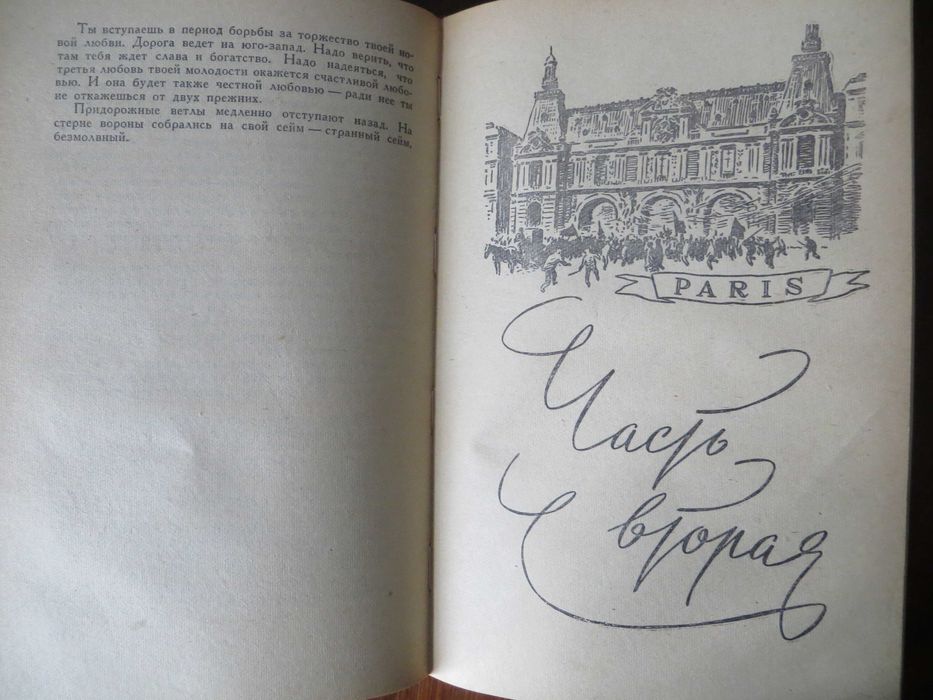 Ты вступаешь в период борьбы за торжество твоей но-
вой любви. Дорога ведет на юго-запад. Надо верить, что
там тебя ждет слава и богатство. Надо надеяться, что
третья любовь твоей молодости окажется счастливой любо-
вью. И она будет также честной любовью — ради нее ты
не откажешься от двух прежних.
Придорожные ветлы медленно отступают назад. На
стерне вороны собрались на свой сейм — странный сейм,
безмолвный.
PARIS
Часть
вторая